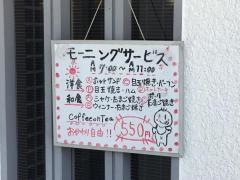 モーニングサービス
AM7:00〜AM11:00
洋食 Ⓐホットサンド Ⓒ目玉焼き・ベーコン
Ⓑ目玉焼き・ハム
和食 Ⓐシャケ・たまご焼き
ウィンナー・たまご焼き
Coffee or Tea
おかわり自由!! 550円